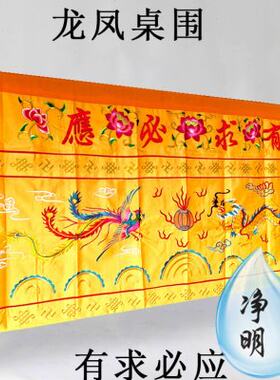 龙凤桌围
應必求有
净明
有求必应